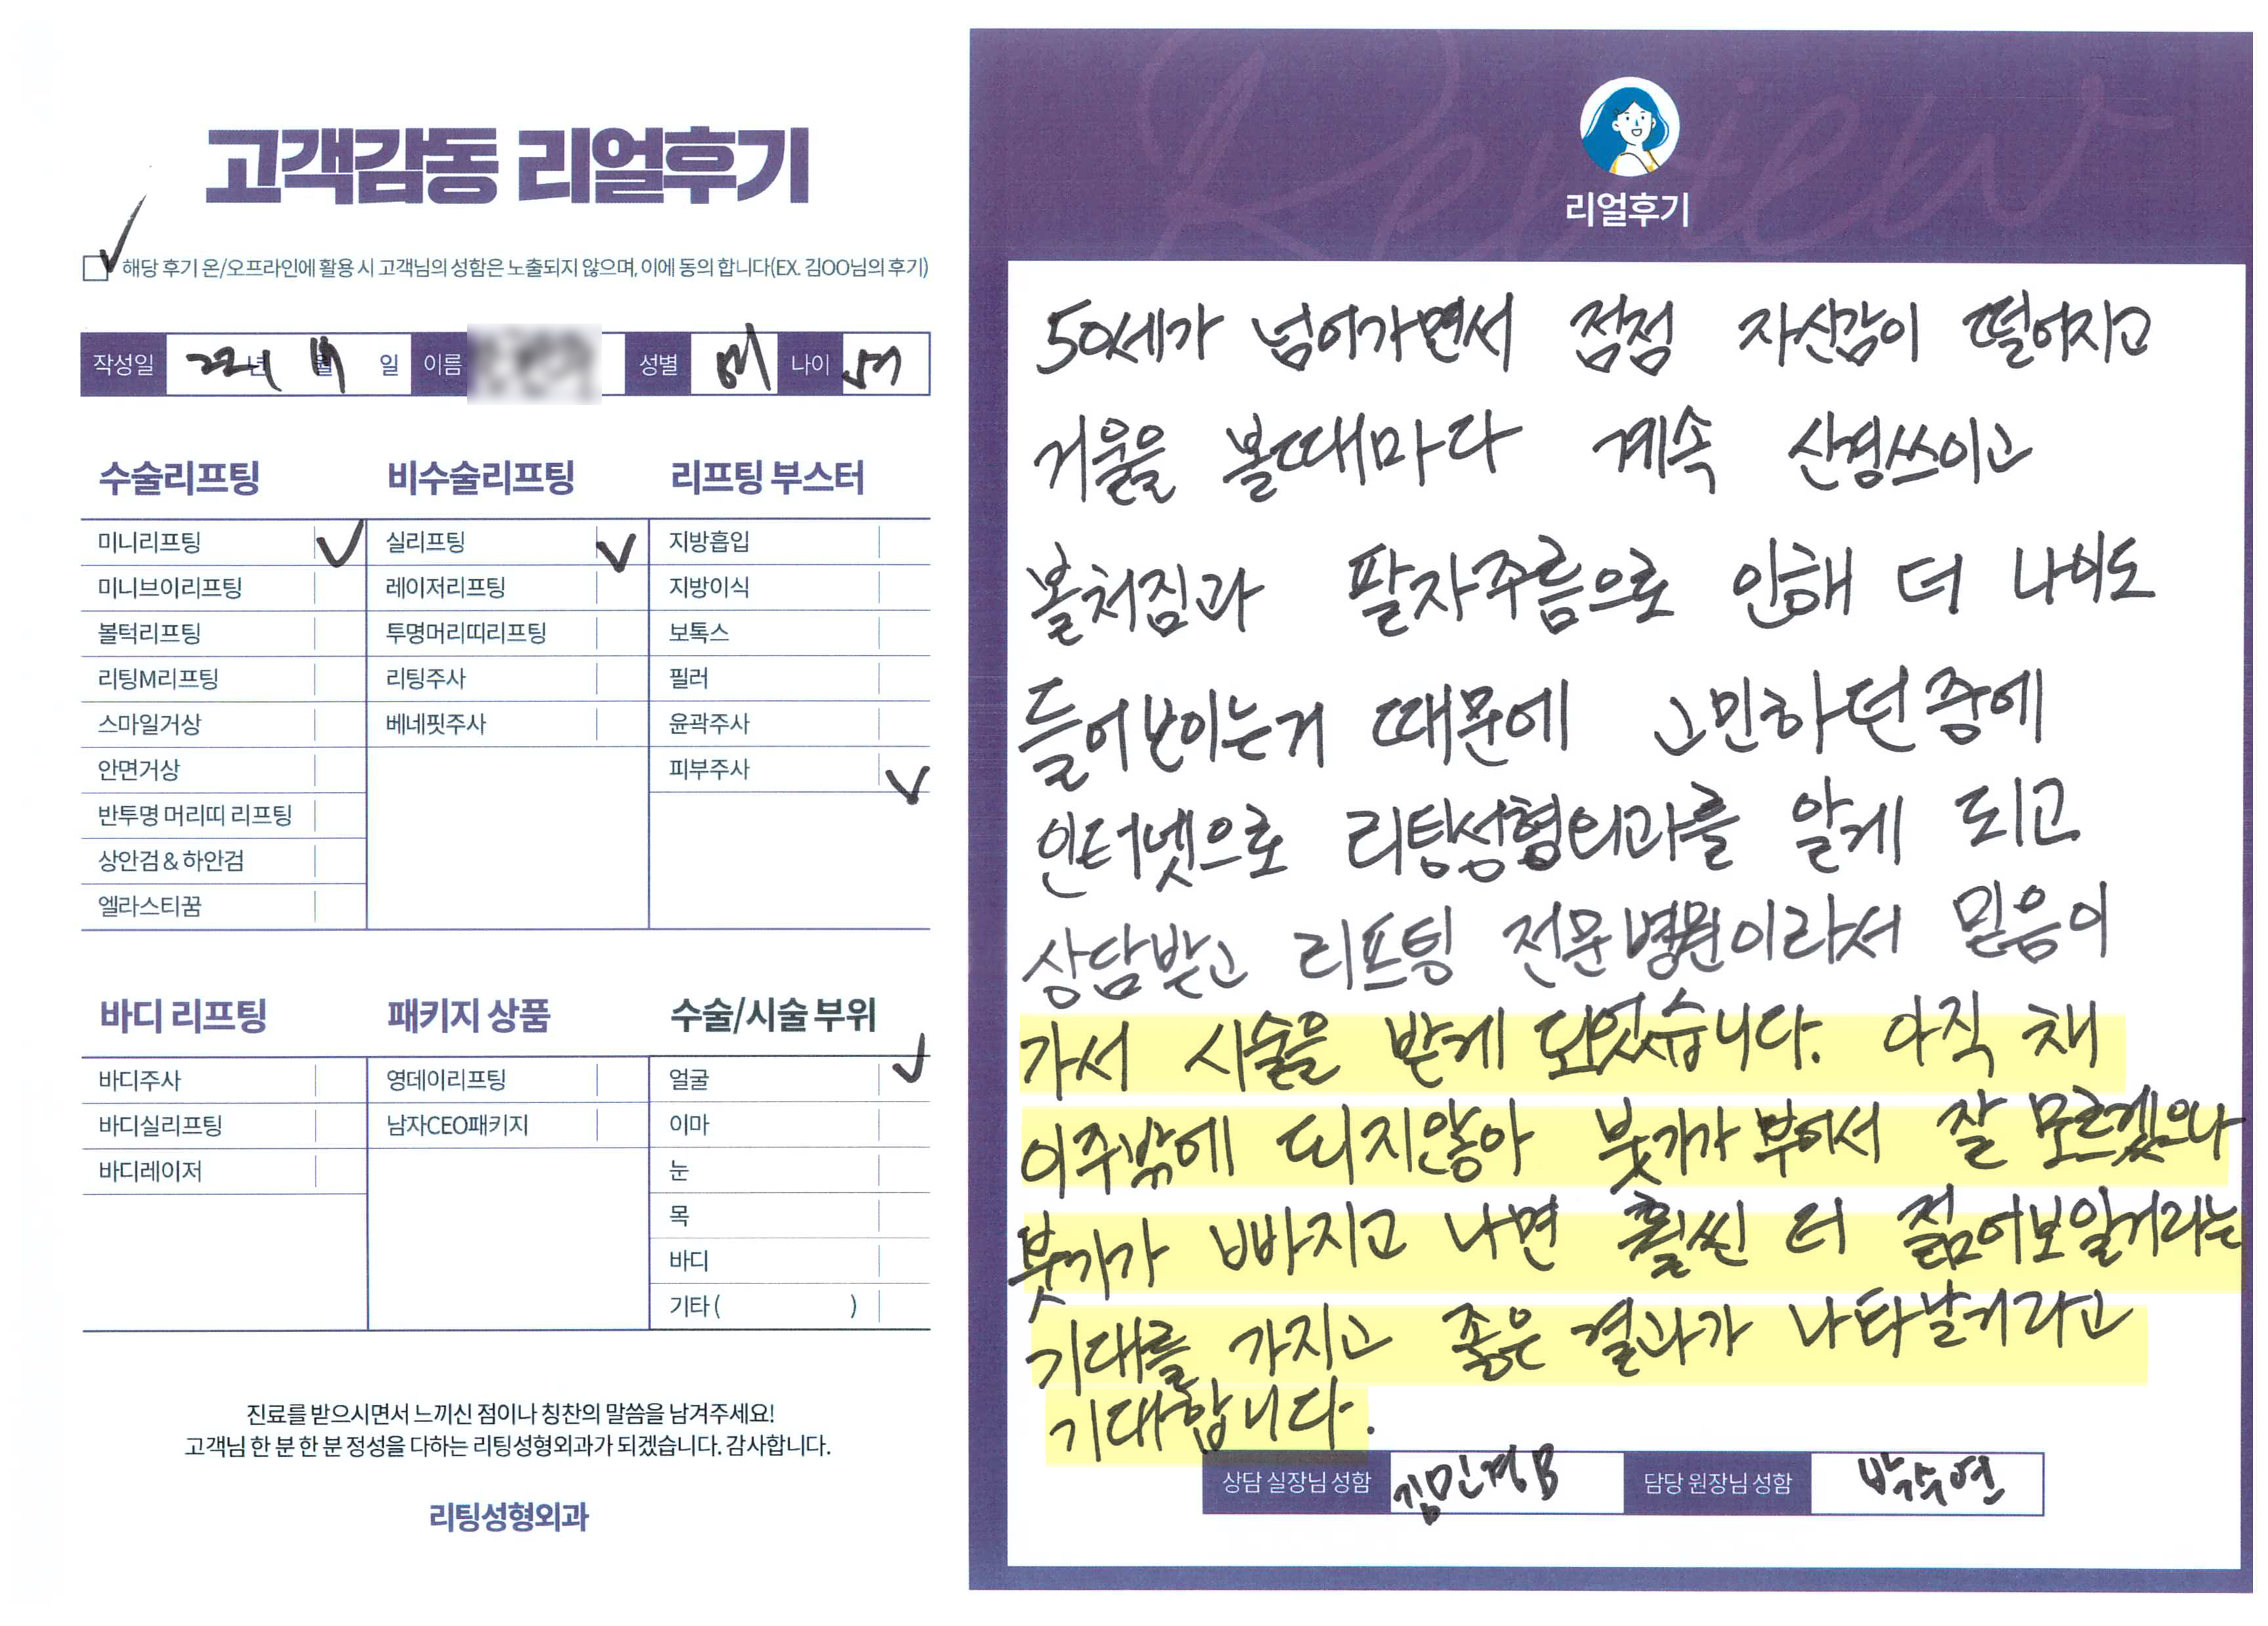 고객감동 리얼후기
해당 후기 온/오프라인에 활용 시 고객님의 성함은 노출되지 않으며, 이에 동의 합니다(EX. 김OO님의 후기)
작성일 년 월 일 이름 성별 나이
수술리프팅 비수술리프팅 리프팅 부스터
미니리프팅 실리프팅 지방흡입
미니브이리프팅 레이저리프팅 지방이식
볼턱리프팅 투명머리띠리프팅 보톡스
리팅M리프팅 리팅주사 필러
스마일거상 베네핏주사 윤곽주사
안면거상 피부주사
반투명 머리띠 리프팅
상안검 & 하안검
엘라스티꿈
바디 리프팅 패키지 상품 수술/시술 부위
바디주사 영데이리프팅 얼굴
바디실리프팅 남자CEO패키지 이마
바디레이저 눈
목
바디
기타 ( )
진료를 받으시면서 느끼신 점이나 칭찬의 말씀을 남겨주세요!
고객님 한 분 한 분 정성을 다하는 리팅성형외과가 되겠습니다. 감사합니다.
리팅성형외과
Review
리얼후기
50세가 넘어가면서 점점 자신감이 떨어지고
거울을 볼때마다 계속 신경쓰이고
볼처짐과 팔자주름으로 인해 더 나이도
들어보이는거 때문에 고민하던중에
인터넷으로 리팅성형외과를 알게 되고
상담받고 리프팅 전문병원이라서 믿음이
가서 시술을 받게 되었습니다. 아직 채
이주밖에 되지않아 붓기가 부어서 잘 모르겠으나
붓기가 빠지고 나면 훨씬 더 젊어보일거라는
기대를 가지고 좋은 결과가 나타날거라고
기대합니다.
상담 실장님 성함 김민경B 담당 원장님 성함 박수연